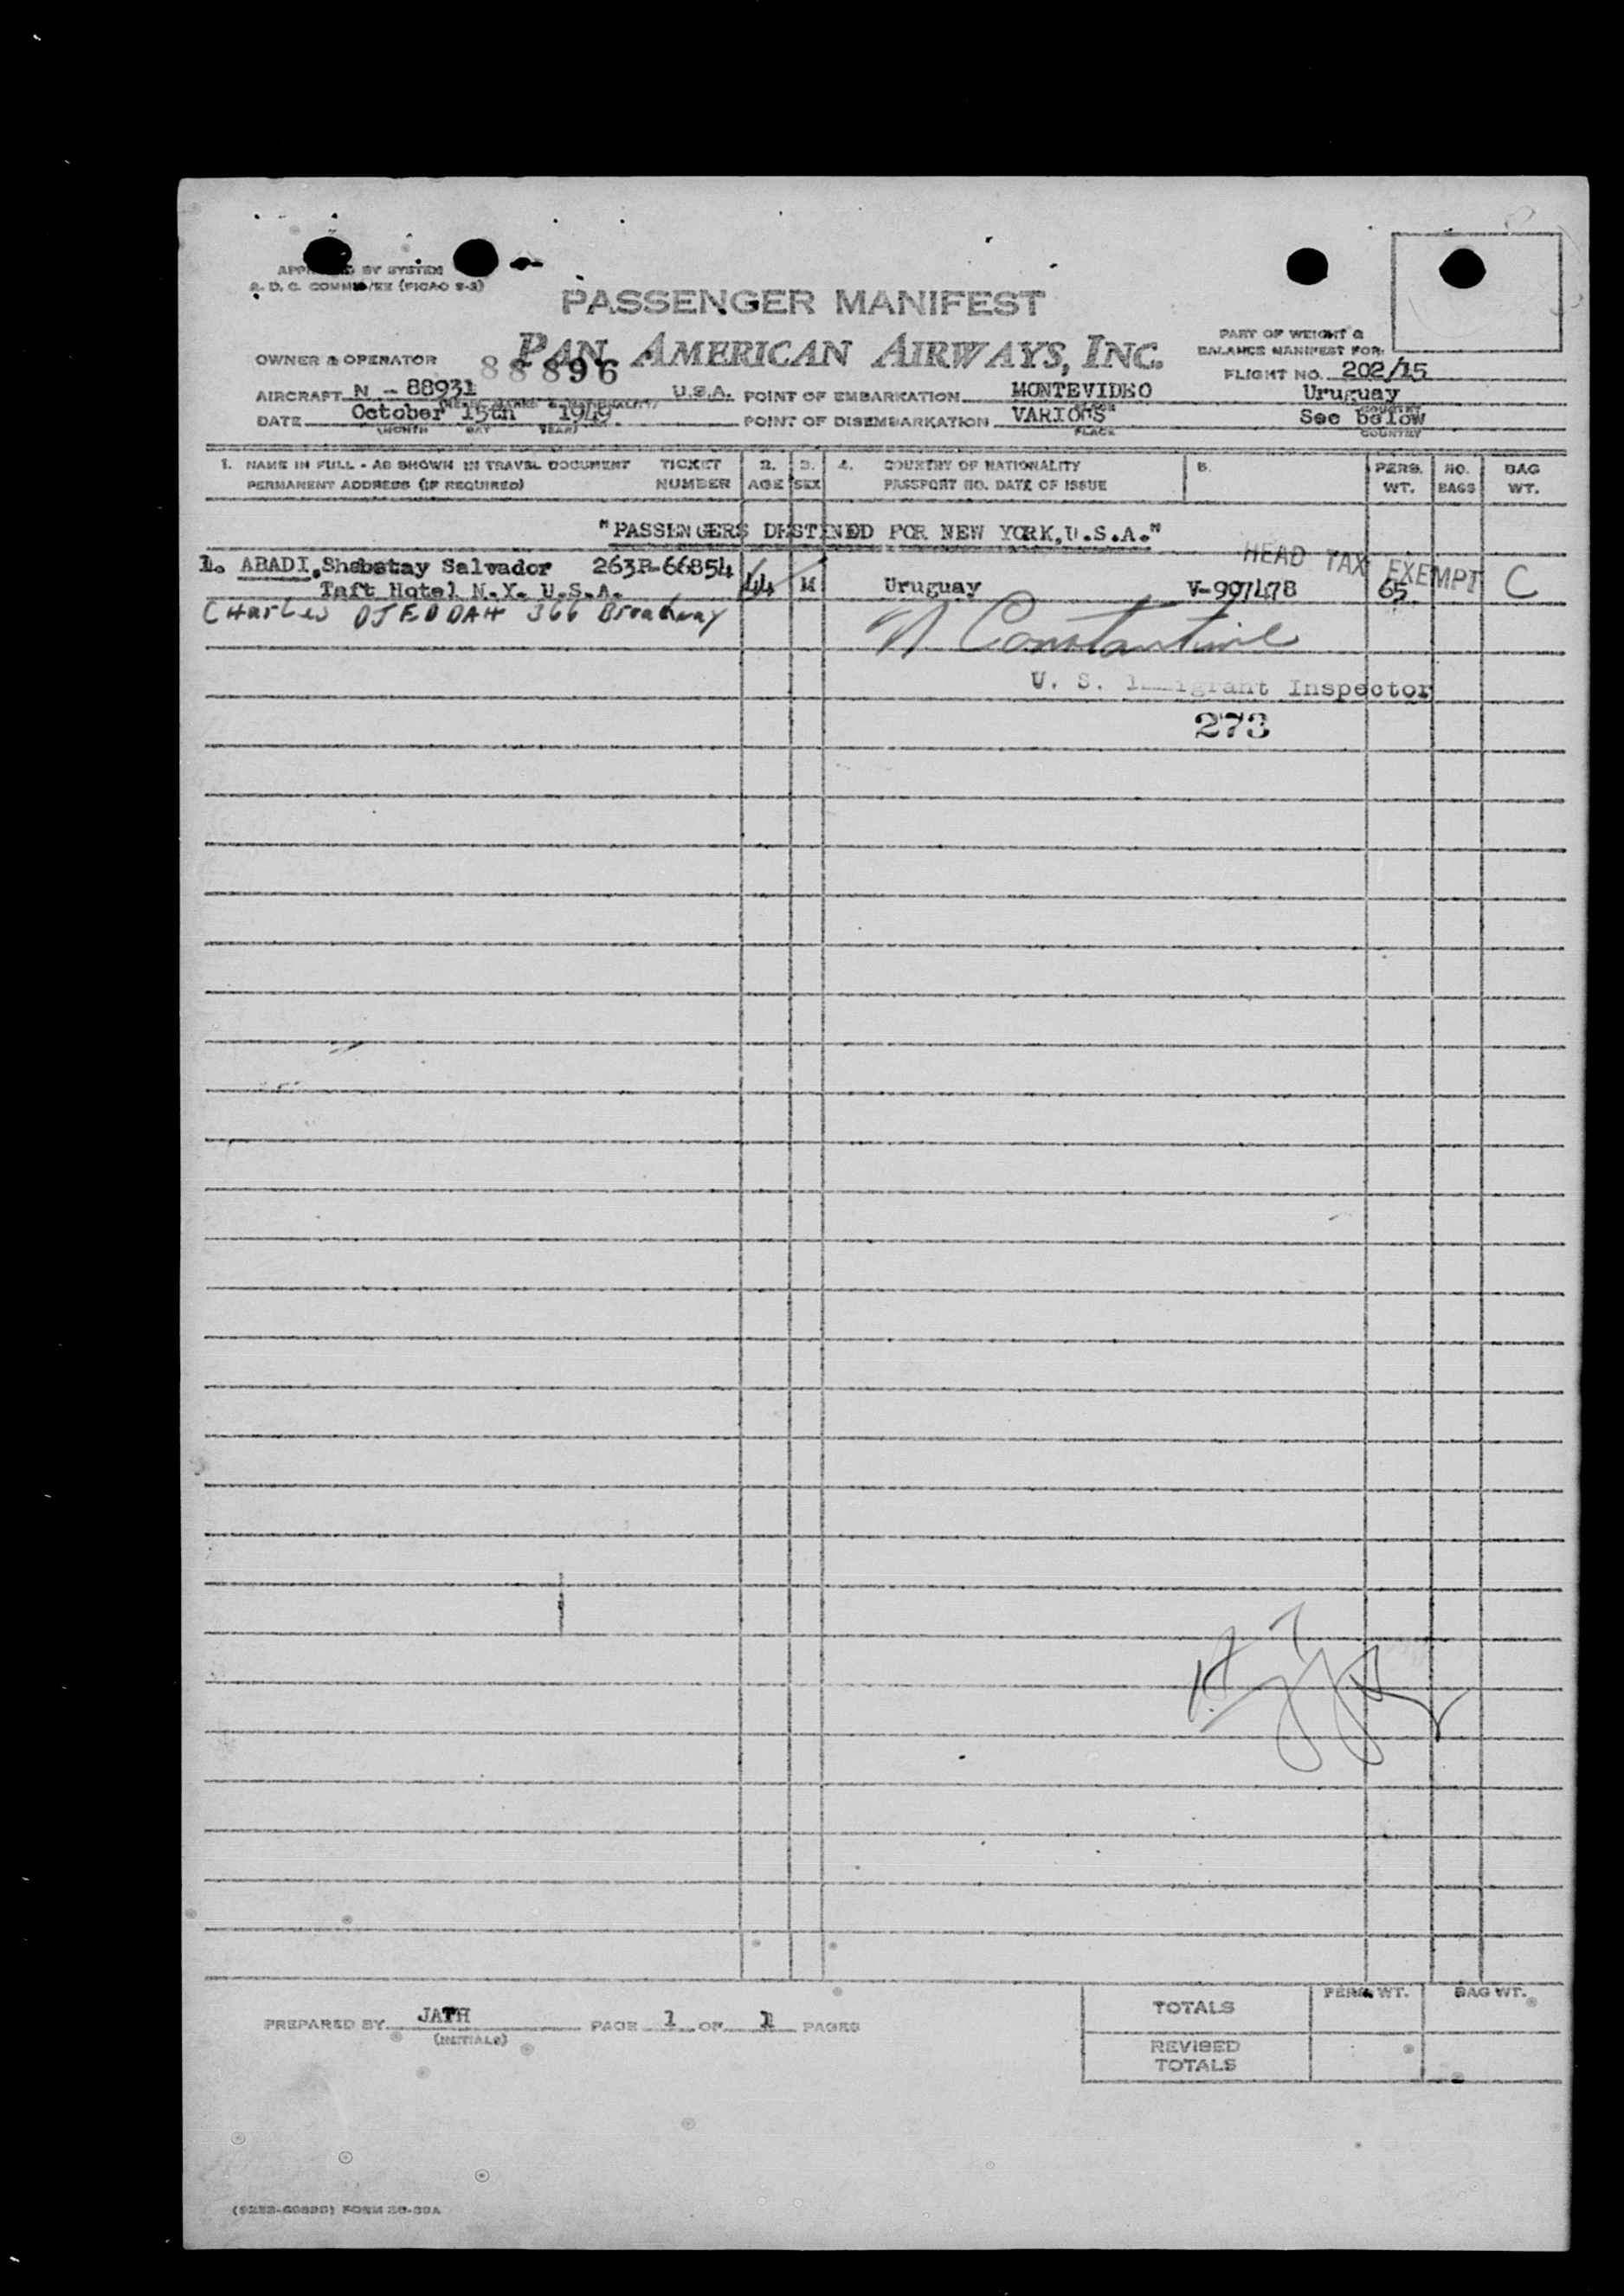 BY SYSTEM
R. D. C. (PICAO S-3)
PASSENGER MANIFEST
PAN AMERICAN AIRWAYS, INC.
PART OF WEIGHT &
BALANCE MANIFEST FOR:
OWNER & OPERATOR 88896
FLIGHT NO. 202/15
AIRCRAFT N - 88931 U.S.A. POINT OF EMBARKATION MONTEVIDEO Uruguay
DATE October 15th 1949. POINT OF DISEMBARKATION VARIOUS See below
(MONTH DAY YEAR) PLACE COUNTRY
1. NAME IN FULL - AS SHOWN IN TRAVEL DOCUMENT TICKET 2. 3. 4. COUNTRY OF NATIONALITY 5. PERS. NO. BAG
PERMANENT ADDRESS (IF REQUIRED) NUMBER AGE SEX PASSPORT NO. DATE OF ISSUE WT. BAGS WT.
"PASSENGERS DESTINED FOR NEW YORK, U.S.A."
HEAD TAX EXEMPT
1. ABADI, Shabetay Salvador 263R-66854
Taft Hotel N.Y. U.S.A. 44 M Uruguay V-907478 65 C
Charles DJEDDAH 366 Broadway
N Constantine
U. S. Immigrant Inspector
273
PREPARED BY JATH PAGE 1 OF 1 PAGES
(INITIALS)
PERS. WT. BAG WT.
TOTALS
REVISED
TOTALS